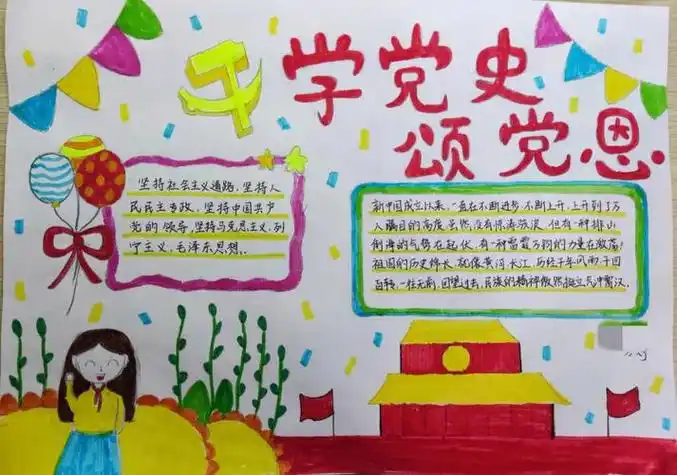 学党史
颂党恩
坚持社会主义道路、坚持人
民民主专政、坚持中国共产
党的领导、坚持马克思主义、列
宁主义、毛泽东思想。
新中国成立以来,一直在不断进步,不断上升,上升到了万
人瞩目的高度。虽然,没有惊涛骇浪,但有一种排山
倒海的气势在起伏,有一种雷霆万钧的力量在激荡!
祖国的历史悠长,就像黄河、长江,历经千年风雨,千回
百转,一往无前,回望过去,民族的精神傲然挺立风中霄汉。